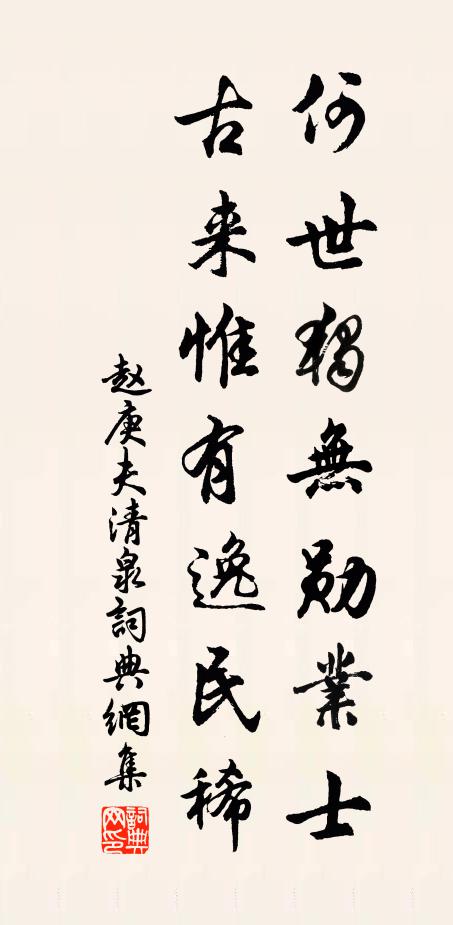 何世獨無勋業士
古来惟有逸民稀
赵庚夫清泉詞典網集
詞典网印